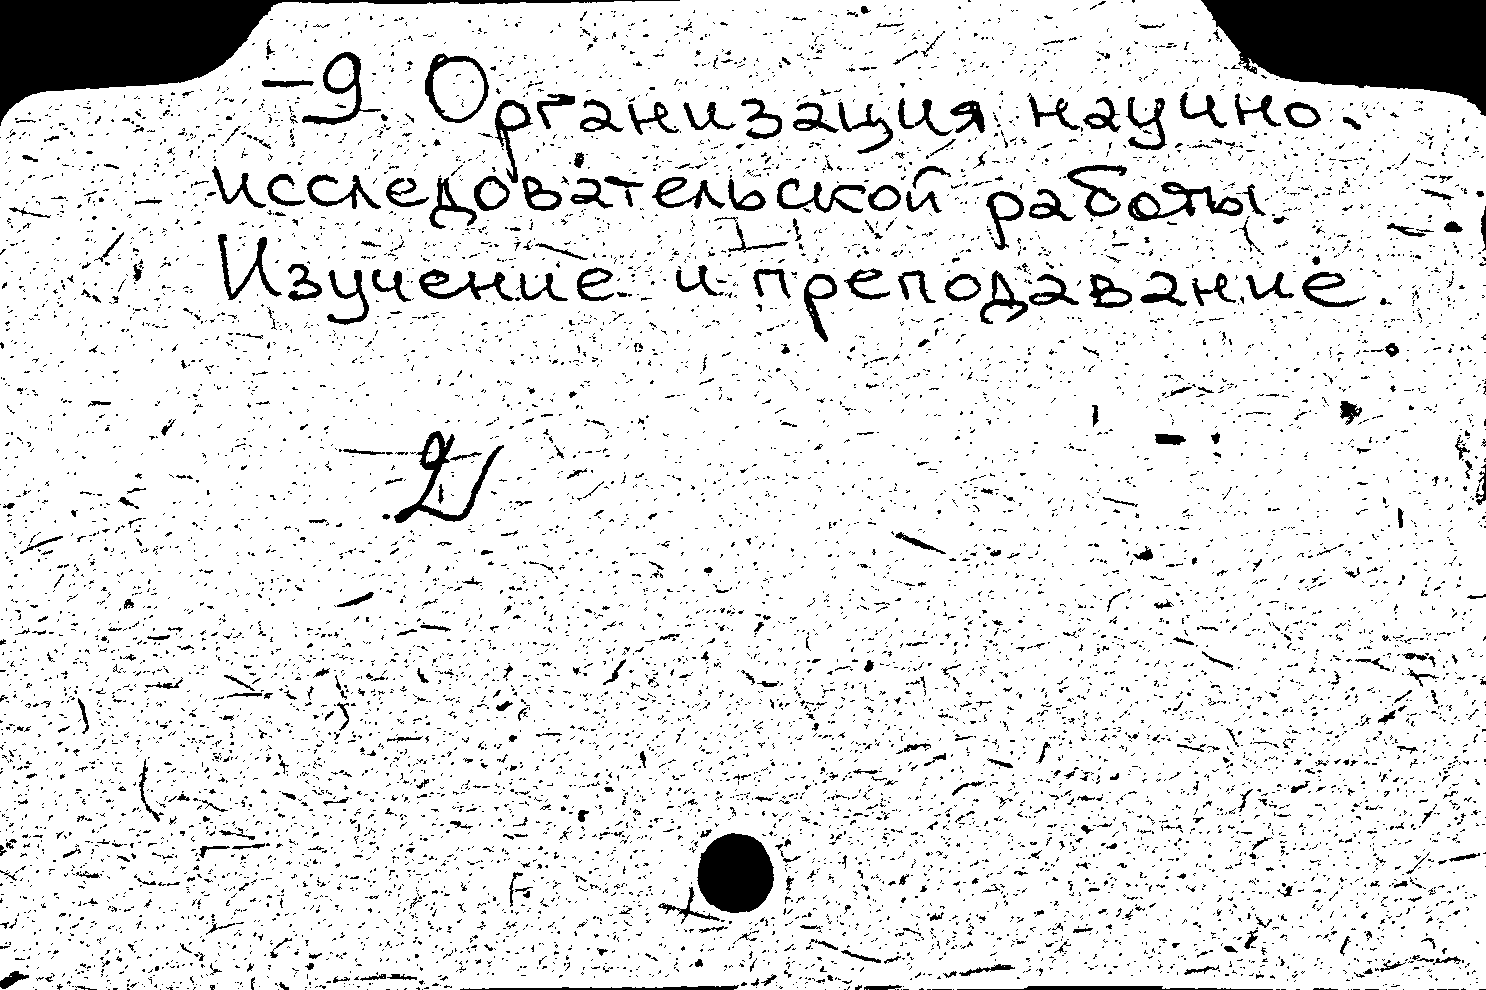 –9. Организация научно-
исследовательской работы.
Изучение и преподавание.